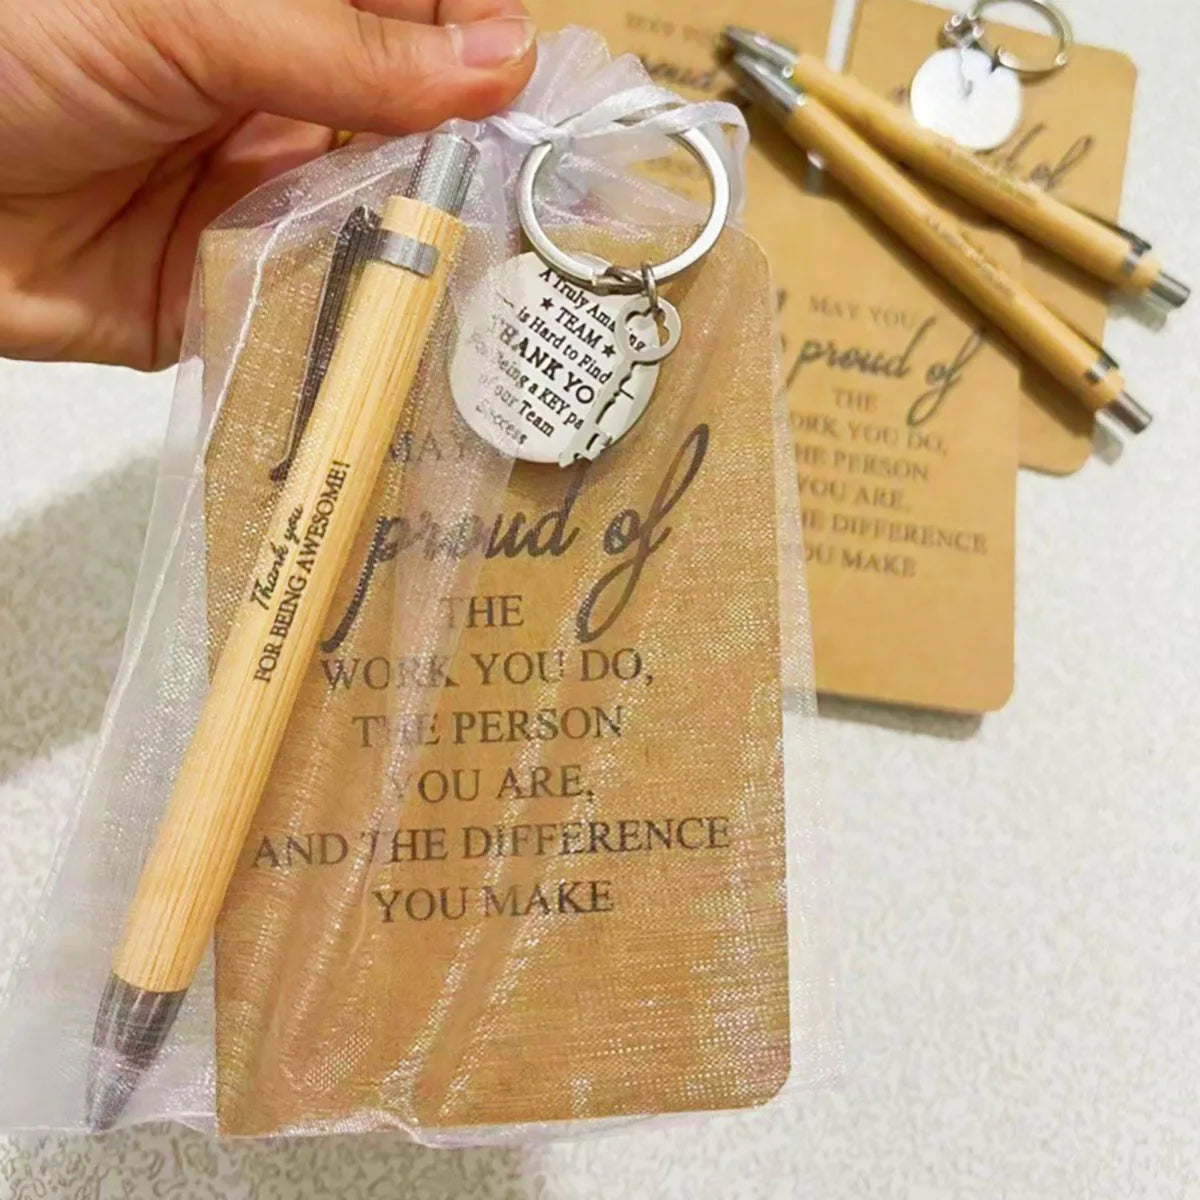 A Truly Amazing
★ TEAM ★
is Hard to Find
THANK YO
For Being a KEY pa
of our Team
Success
Thank you
FOR BEING AWESOME!
MAY
proud of
THE
WORK YOU DO,
THE PERSON
YOU ARE,
AND THE DIFFERENCE
YOU MAKE
MAY YOU
proud of
THE
WORK YOU DO,
THE PERSON
YOU ARE,
THE DIFFERENCE
YOU MAKE
proud